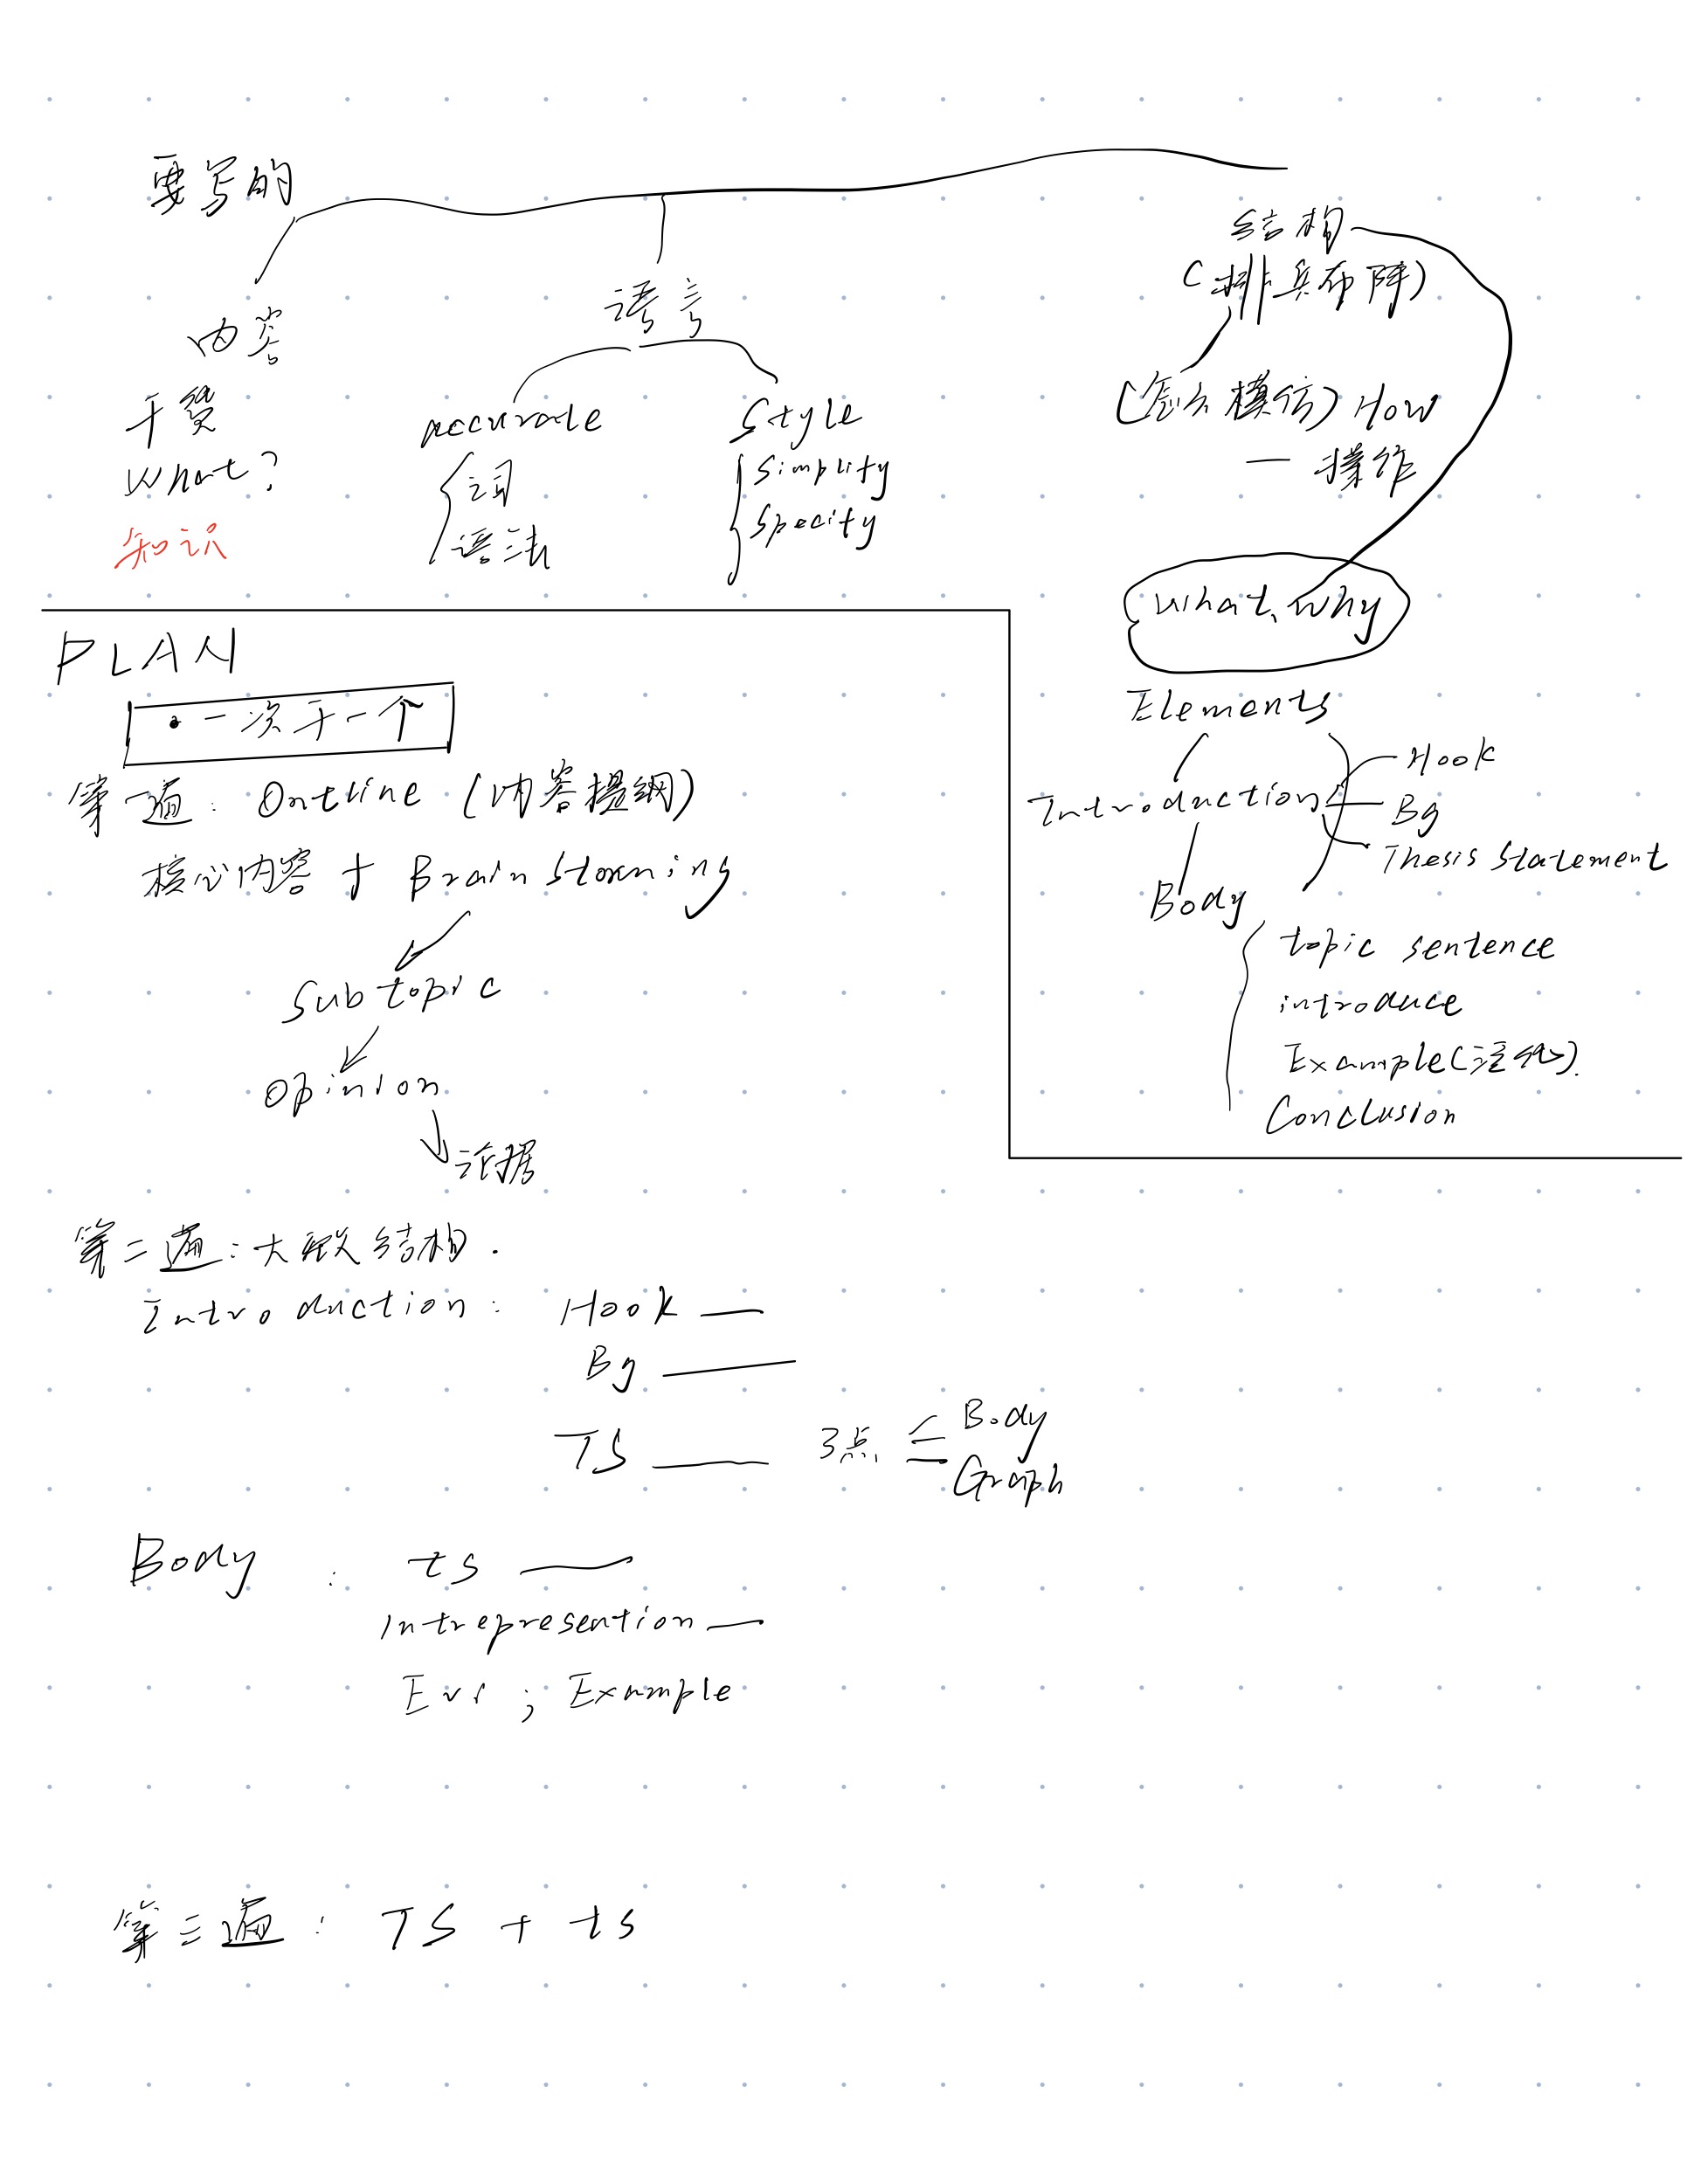 要写的
内容
干货
What?
知识
语言
accurate
词
语法
Style
Simplity
Specity
结构
(排兵布阵)
(怎么模仿) How
一 操作
What、Why
Elements
Introduction
Hook
Bg
Thesis Statement
Body
topic sentence
introduce
Example
Conclusion
PLAN
• 一次干一个
第一遍: Outline (内容提纲)
核心内容 + Brain Storming
Subtopic
Opinion
论据
第二遍: 大致结构.
Introduction: Hook —
Bg —
TS — 3点、 Body
Graph
Body : ts —
Intrepresention —
Evi ; Example
第三遍: TS + ts